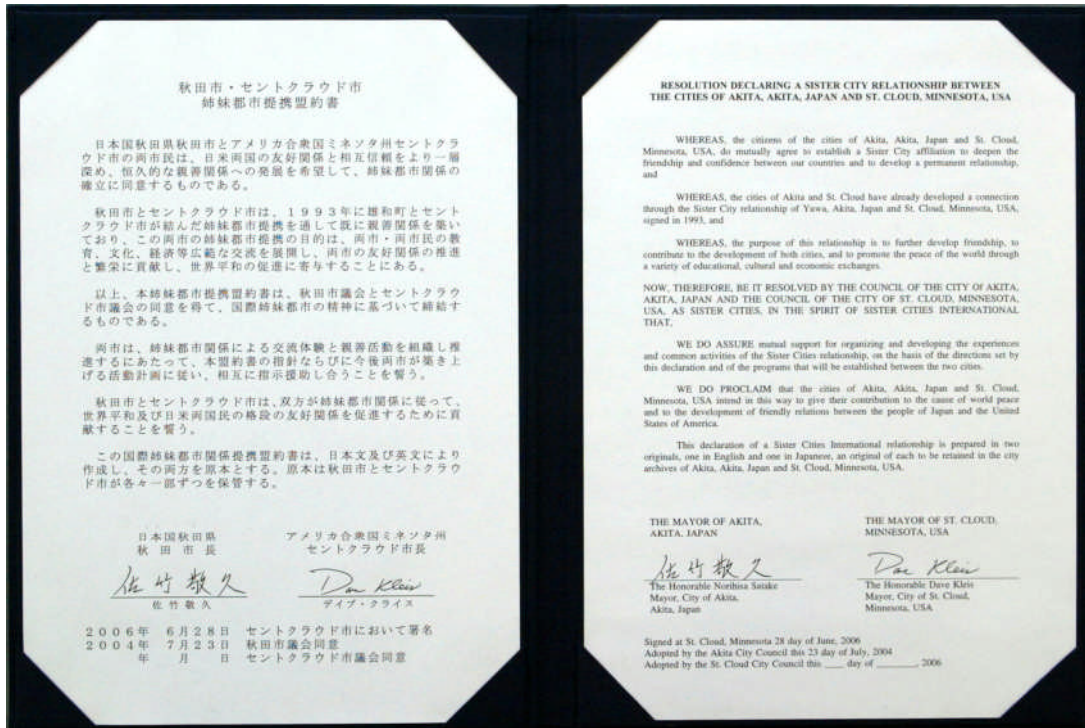 秋田市・セントクラウド市
姉妹都市提携盟約書
日本国秋田県秋田市とアメリカ合衆国ミネソタ州セントクラ
ウド市の両市民は、日米両国の友好関係と相互信頼をより一層
深め、恒久的な親善関係への発展を希望して、姉妹都市関係の
確立に同意するものである。
秋田市とセントクラウド市は、1993年に雄和町とセント
クラウド市が結んだ姉妹都市提携を通して既に親善関係を築い
ており、この両市の姉妹都市提携の目的は、両市・両市民の教
育、文化、経済等広範な交流を展開し、両市の友好関係の推進
と繁栄に貢献し、世界平和の促進に寄与することにある。
以上、本姉妹都市提携盟約書は、秋田市議会とセントクラウ
ド市議会の同意を得て、国際姉妹都市の精神に基づいて締結す
るものである。
両市は、姉妹都市関係による交流体験と親善活動を組織し推
進するにあたって、本盟約書の指針ならびに今後両市が築き上
げる活動計画に従い、相互に指示援助し合うことを誓う。
秋田市とセントクラウド市は、双方が姉妹都市関係に従って、
世界平和及び日米両国民の格段の友好関係を促進するために貢
献することを誓う。
この国際姉妹都市関係提携盟約書は、日本文及び英文により
作成し、その両方を原本とする。原本は秋田市とセントクラウ
ド市が各々一部ずつを保管する。
日本国秋田県
秋田市長
アメリカ合衆国ミネソタ州
セントクラウド市長
佐竹敬久
Dave Kleis
佐竹敬久
デイブ・クライス
2006年 6月28日 セントクラウド市において署名
2004年 7月23日 秋田市議会同意
年 月 日 セントクラウド市議会同意
RESOLUTION DECLARING A SISTER CITY RELATIONSHIP BETWEEN
THE CITIES OF AKITA, AKITA, JAPAN AND ST. CLOUD, MINNESOTA, USA
WHEREAS, the citizens of the cities of Akita, Akita, Japan and St. Cloud,
Minnesota, USA, do mutually agree to establish a Sister City affiliation to deepen the
friendship and confidence between our countries and to develop a permanent relationship,
and
WHEREAS, the cities of Akita and St. Cloud have already developed a connection
through the Sister City relationship of Yuwa, Akita, Japan and St. Cloud, Minnesota, USA,
signed in 1993, and
WHEREAS, the purpose of this relationship is to further develop friendship, to
contribute to the development of both cities, and to promote the peace of the world through
a variety of educational, cultural and economic exchanges.
NOW, THEREFORE, BE IT RESOLVED BY THE COUNCIL OF THE CITY Of AKITA,
AKITA, JAPAN AND THE COUNCIL OF THE CITY OF ST. CLOUD, MINNESOTA,
USA, AS SISTER CITIES, IN THE SPIRIT OF SISTER CITIES INTERNATIONAL
THAT,
WE DO ASSURE mutual support for organizing and developing the experiences
and common activities of the Sister Cities relationship, on the basis of the directions set by
this declaration and of the programs that will be established between the two cities.
WE DO PROCLAIM that the cities of Akita, Akita, Japan and St. Cloud,
Minnesota, USA intend in this way to give their contribution to the cause of world peace
and to the development of friendly relations between the people of Japan and the United
States of America.
This declaration of a Sister Cities International relationship is prepared in two
originals, one in English and one in Japanese, an original of each to be retained in the city
archives of Akita, Akita, Japan and St. Cloud, Minnesota, USA.
THE MAYOR OF AKITA,
AKITA, JAPAN
THE MAYOR OF ST. CLOUD,
MINNESOTA, USA
佐竹敬久
Dave Kleis
The Honorable Norihisa Satake
Mayor, City of Akita,
Akita, Japan
The Honorable Dave Kleis
Mayor, City of St. Cloud,
Minnesota, USA
Signed at St. Cloud, Minnesota 28 day of June, 2006
Adopted by the Akita City Council this 23 day of July, 2004
Adopted by the St. Cloud City Council this ____ day of ________, 2006